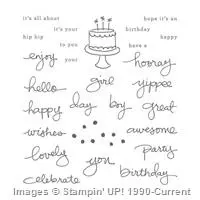 it's all about
hope it's an
it's your
birthday
hip hip
happy
to you
have a
enjoy
your
hooray
hello
girl
yippee
happy
day
boy
great
wishes
awesome
lovely
you
party
celebrate
birthday
Images © Stampin' UP! 1990-Current